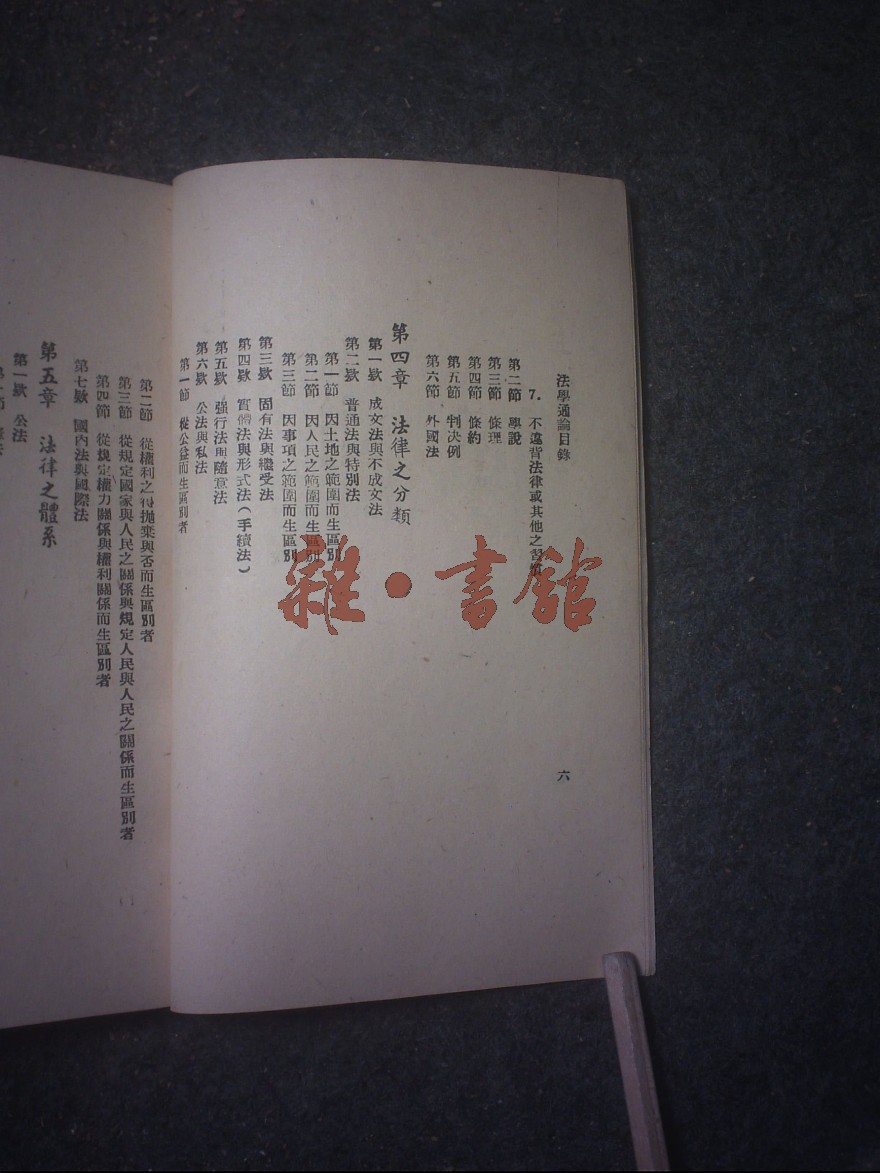 法學通論目錄
六
7. 不違背法律或其他之習慣
第二節 學說
第三節 條理
第四節 條約
第五節 判決例
第六節 外國法
第四章 法律之分類
第一欵 成文法與不成文法
第二欵 普通法與特別法
第一節 因土地之範圍而生區別
第二節 因人民之範圍而生區別
第三節 因事項之範圍而生區別
第三欵 固有法與繼受法
第四欵 實體法與形式法(手續法)
第五欵 强行法與隨意法
第六欵 公法與私法
第一節 從公益而生區別者
第二節 從權利之得拋棄與否而生區別者
第三節 從規定國家與人民之關係與規定人民與人民之關係而生區別者
第四節 從規定權力關係與權利關係而生區別者
第七欵 國內法與國際法
第五章 法律之體系
第一欵 公法
雜·書館